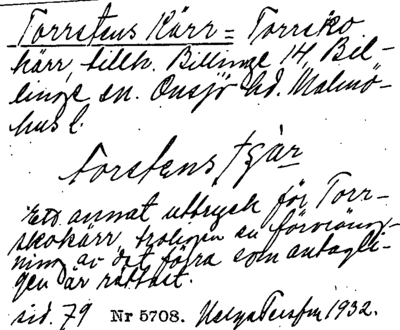 Torrstens Kärr = Torrsko
kärr, tillh. Billinge 14, Bil-
linge sn. Onsjö hd. Malmö-
hus l.
Torstens tjär
Ett annat uttryck för Torr-
skokärr, troligen en förvräng-
ning av det förra som antagli-
gen är rättast.
sid. 79 Nr 5708. Helga 1932.